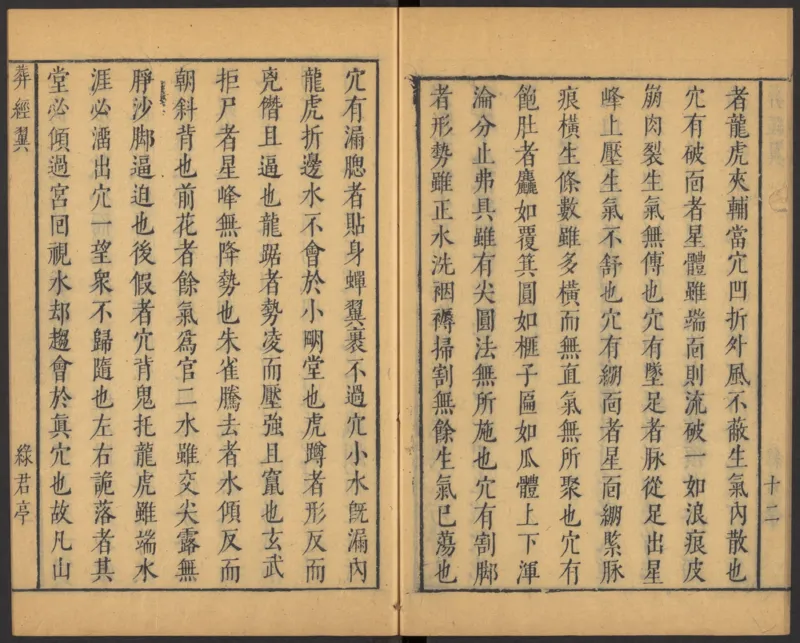 十二
者龍虎夾輔當穴凹折外風不蔽生氣內散也
穴有破面者星體雖端面則流破一如浪痕皮
崩肉裂生氣無傳也穴有墜足者脉從足出星
峰上壓生氣不舒也穴有綳面者星面綳緊脉
痕橫生條數雖多橫而無直氣無所聚也穴有
飽肚者麤如覆箕圓如榧子匾如瓜體上下渾
淪分止弗具雖有尖圓法無所施也穴有割脚
者形勢雖正水洗裀褥掃割無餘生氣已蕩也
穴有漏腮者貼身蟬翼裹不過穴小水旣漏內
龍虎折邊水不會於小明堂也虎蹲者形反而
兇僭且逼也龍踞者勢凌而壓強且竄也玄武
拒尸者星峰無降勢也朱雀騰去者水傾反而
朝斜背也前花者餘氣爲官二水雖交尖露無
脝沙脚逼迫也後假者穴背鬼托龍虎雖端水
涯必湢出穴一望衆不歸隨也左右詭落者其
堂必傾過宮回視水却趨會於真穴也故凡山
葬經翼
綠君亭